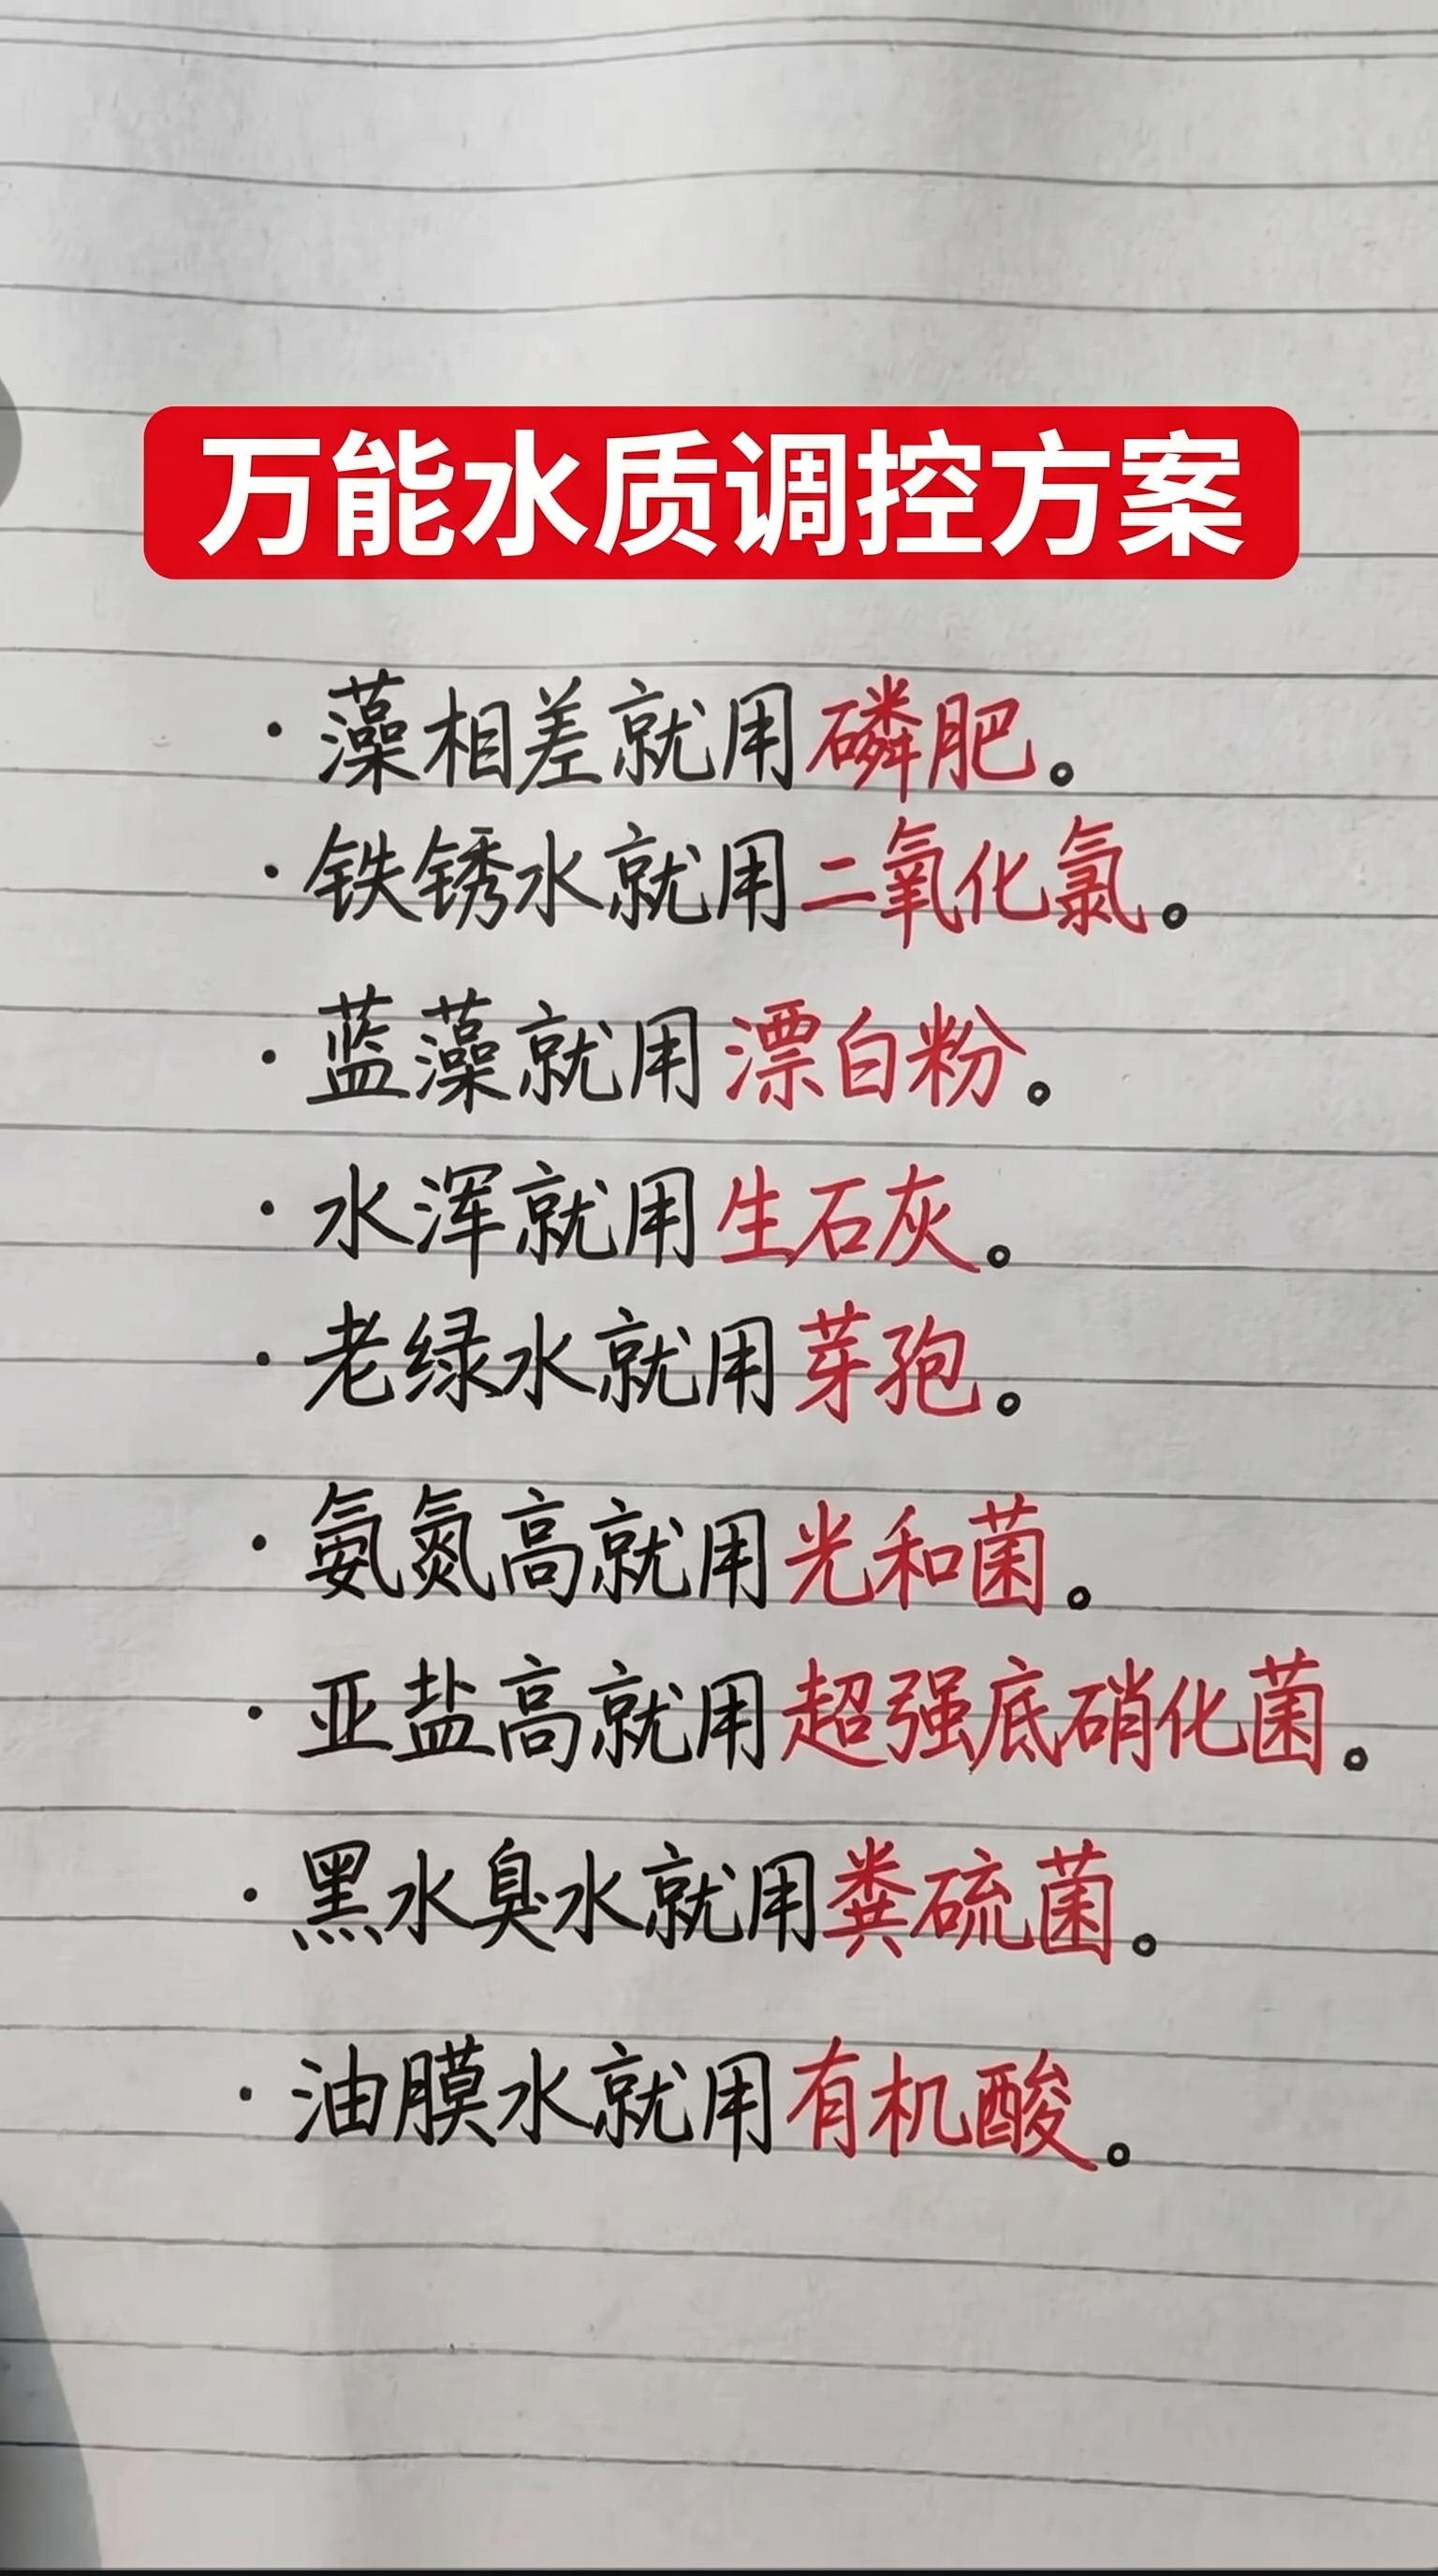 万能水质调控方案
· 藻相差就用磷肥。
· 铁锈水就用二氧化氯。
· 蓝藻就用漂白粉。
· 水浑就用生石灰。
· 老绿水就用芽孢。
· 氨氮高就用光和菌。
· 亚盐高就用超强底硝化菌。
· 黑水臭水就用粪硫菌。
· 油膜水就用有机酸。